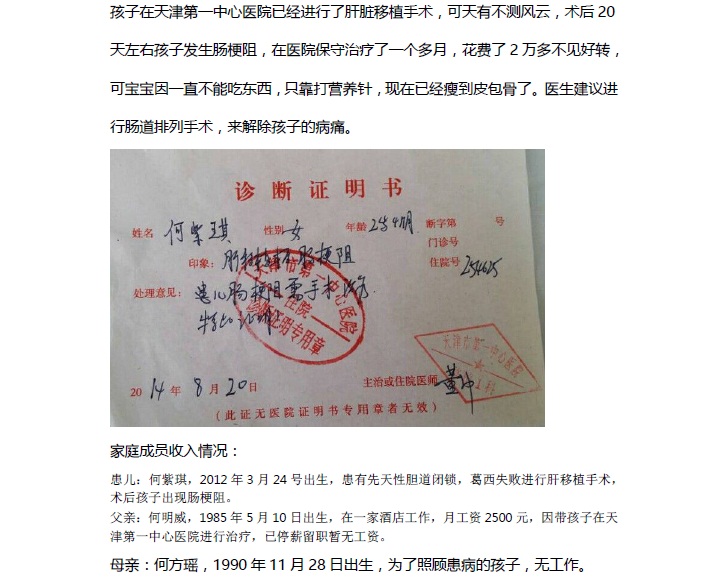 孩子在天津第一中心医院已经进行了肝脏移植手术，可天有不测风云，术后 20
天左右孩子发生肠梗阻，在医院保守治疗了一个多月，花费了 2 万多不见好转，
可宝宝因一直不能吃东西，只靠打营养针，现在已经瘦到皮包骨了。医生建议进
行肠道排列手术，来解除孩子的病痛。
诊断证明书
姓名 何紫琪 性别 女 年龄 2岁4月 断字第 号
门诊号
印象： 肝移植术后 肠梗阻 住院号 254625
处理意见： 患儿肠梗阻需手术治疗
特此证明
天津市第一中心医院
住院
诊断证明专用章
天津市第一中心医院
2014年 8月20日 主治或住院医师
（此证无医院证明书专用章者无效）
家庭成员收入情况：
患儿：何紫琪，2012 年 3 月 24 号出生，患有先天性胆道闭锁，葛西失败进行肝移植手术，
术后孩子出现肠梗阻。
父亲：何明威，1985 年 5 月 10 日出生，在一家酒店工作，月工资 2500 元，因带孩子在天
津第一中心医院进行治疗，已停薪留职暂无工资。
母亲：何方瑶，1990 年 11 月 28 日出生，为了照顾患病的孩子，无工作。